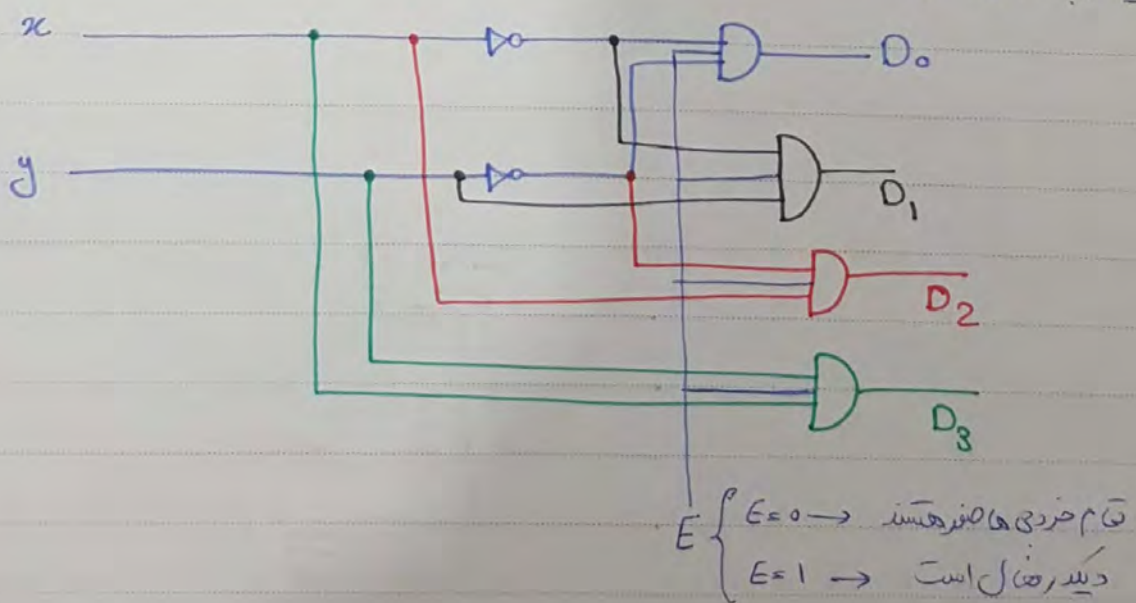 x
D₀
y
D₁
D₂
D₃
E { E=0 → تمام خروجی ها صفر هستند
E=1 → دیکدر فعال است